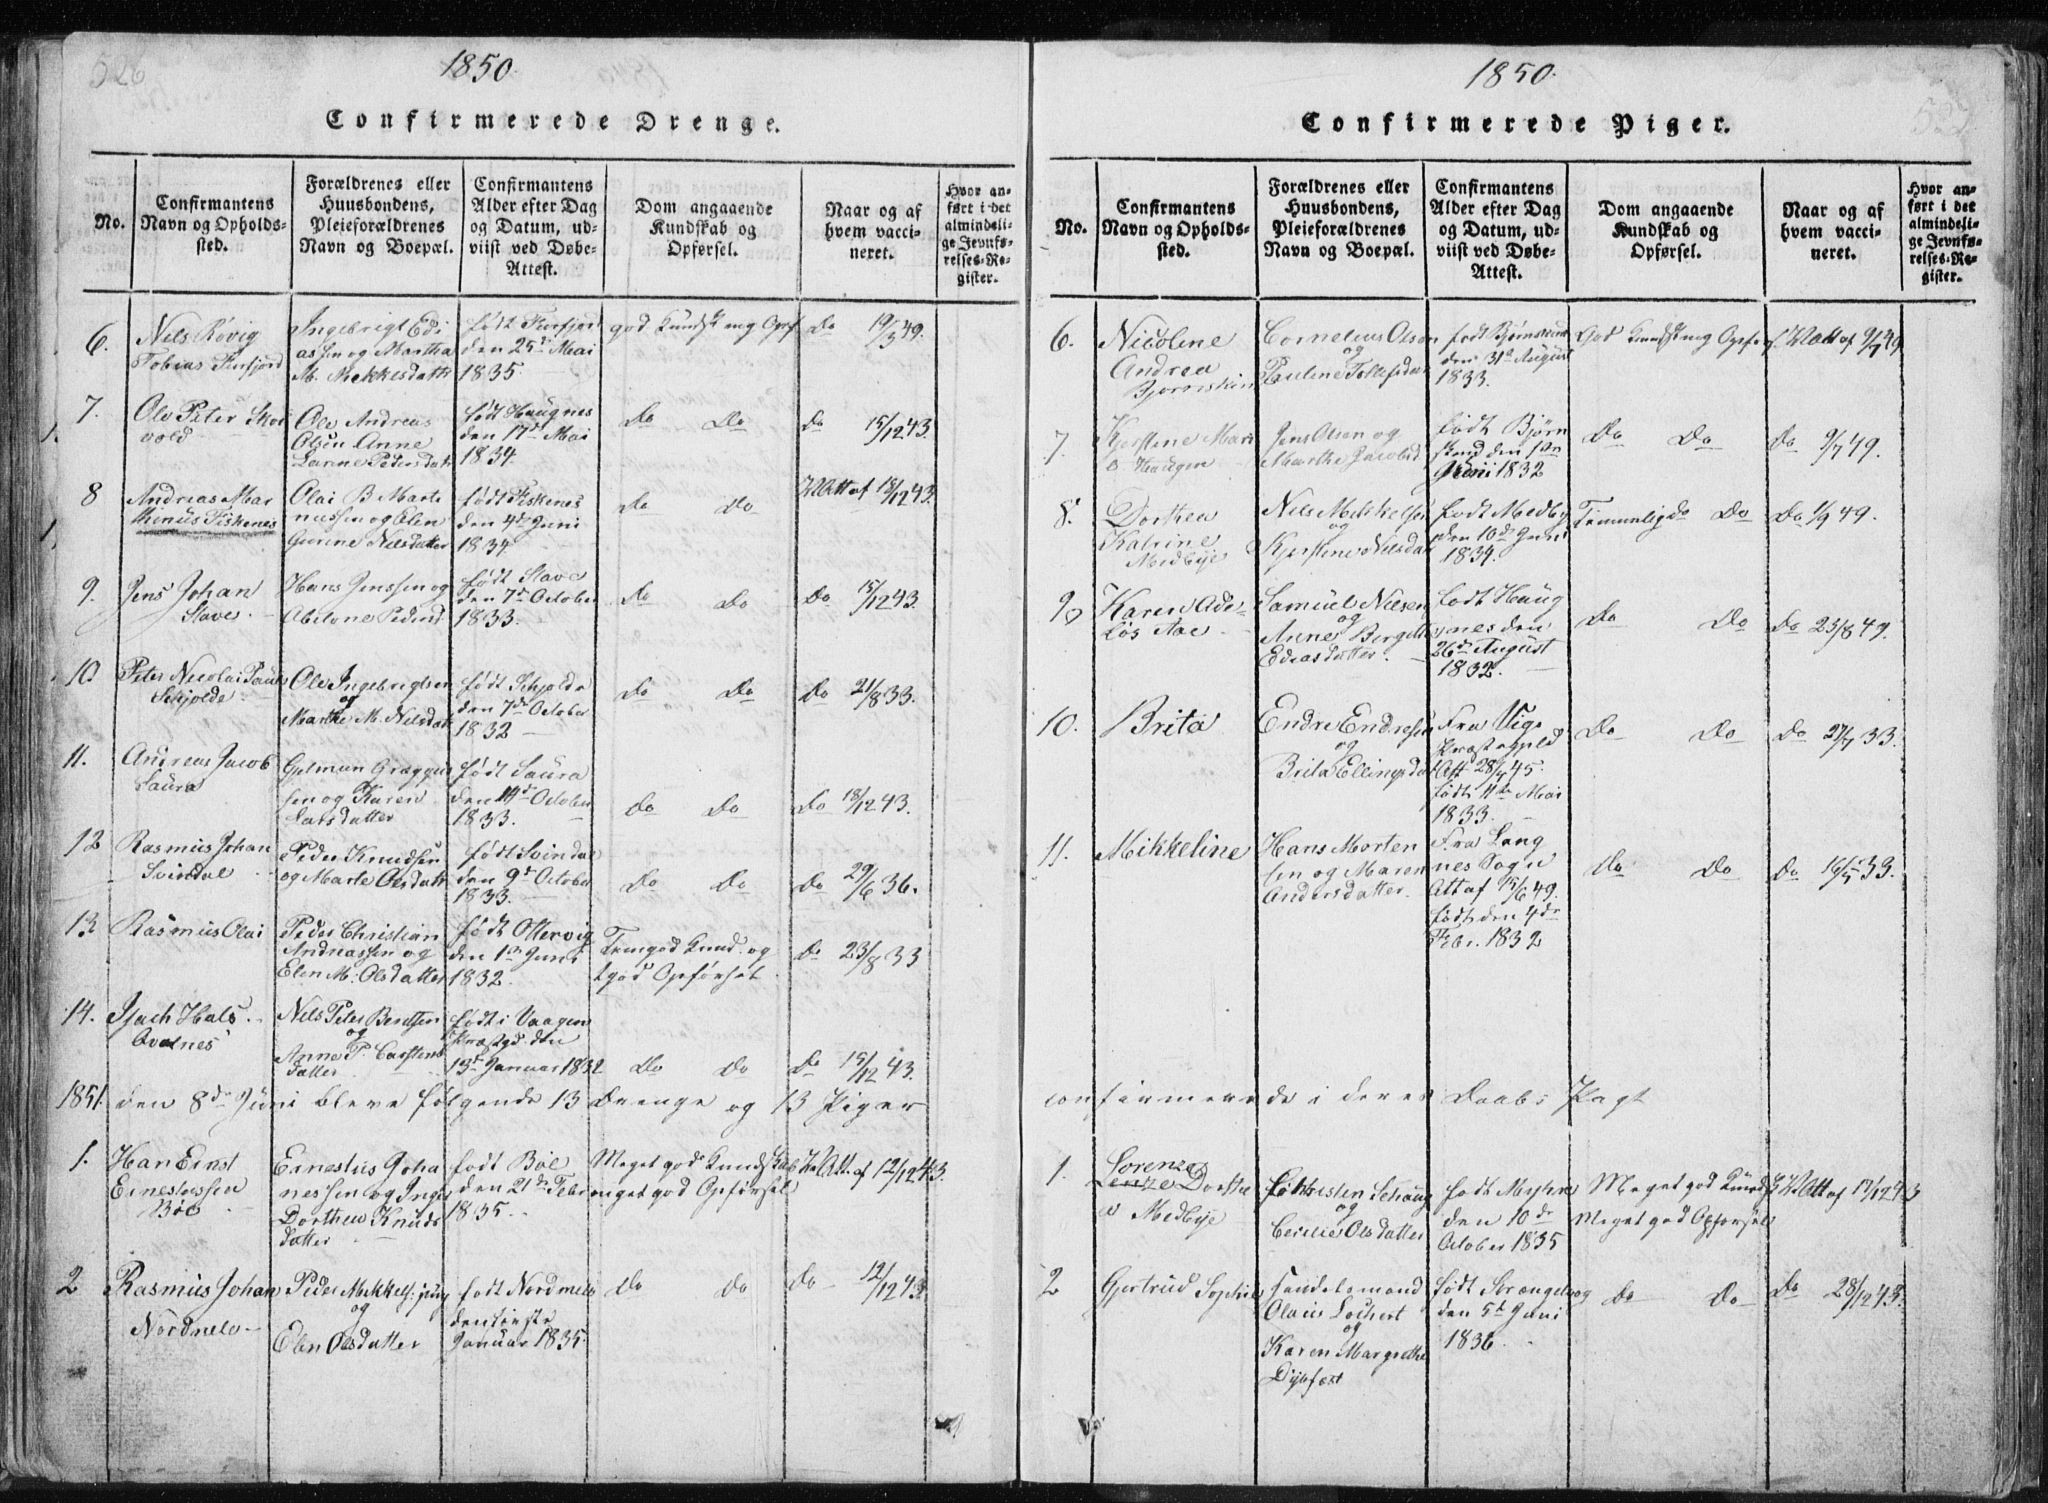 526
1850.
Confirmerede Drenge.
No.
Confirmantens
Navn og Opholds-
sted.
Forældrenes eller
Huusbondens,
Pleieforældrenes
Navn og Boepæl.
Confirmantens
Alder efter Dag
og Datum, ud-
viist ved Døbe-
Attest.
Dom angaaende
Kundskab og
Opførsel.
Naar og af
hvem vacci-
neret.
Hvor an-
ført i det
almindeli-
ge Jevnfø-
relses-Re-
gister.
6.
Nels Røvig
Tobias Finfjord
Ingebrigt Edi
assen og Martha
M. Mekkelsdattr
født Finfjord
den 25de Mai
1835.
god Kundsk og Opf
Do 19/3 49.
7.
Ole Peter Skog
vold
Ole Andreas
Olsen Anne
Larine Pedersdattr
født Haugnes
den 17de Mai
1834.
Do Do
Do 15/12 43.
8
Andreas Mar
thinus Fiskenes
Olai B Marti
nussen og Elen
Gurine Nilsdatter
født Fiskenes
den 4de Juni
1834
Do Do
V Att af 18/12 43.
9.
Jens Johan
Stave.
Hans Jenssen og
Abelone Pedersd
født Stave
den 7de October
1833.
Do Do
Do 15/12 43.
10.
Peter Nicolai Paul
Schjolde
Ole Ingebrigtsen
og
Marthe M. Nilsdatr
født Schjolde
den 7de October
1832
Do Do
Do 21/8 33.
11.
Andreas Jacob
Saura
og Karen
Larsdatter
født Saura
den 14de October
1833.
Do Do
Do 18/12 43.
12
Rasmus Johan
Svindal
Peder Knudsen
og Marte Olsdattr
født Svindal
den 9de October
1833.
Do Do
Do 29/6 36.
13
Rasmus Olai
Peder Christian
Andreassen og
Elen M. Olsdatter
født Ottervig
den 1ste Juni
1832.
Temgod Kund. og
tgod Opførsel.
Do 23/8 33
14.
Isach Hals
Avalnes
Nels Peter Bentsen
og
Anne P. Carstens
datter
født i Vaagen
Præstgd. den
13de Januar 1832
Do Do
Do 15/12 43.
1851. den 8de Juni bleve følgende 13 Drenge og 13 Piger
1.
Han Ernst
Ernestussen
Bøe
Ernestus Joha
nessen og Inge
Dorthea Knuds
datter
født Bøe
den 21de Febr
1835.
Meget god Kundskab
meget god Opførsel
V Att. af 12/12 43.
2
Rasmus Johan
Nordmelo
Peder Mekkels: jun
og
Elen Olsdatter
født Nordmelo
den første
Januar 1835.
Do Do
Do 12/12 43
1850.
527
Confirmerede Piger.
No.
Confirmantens
Navn og Opholds-
sted.
Forældrenes eller
Huusbondens,
Pleieforældrenes
Navn og Boepæl.
Confirmantens
Alder efter Dag
og Datum, ud-
viist ved Døbe-
Attest.
Dom angaaende
Kundskab og
Opførsel.
Naar og af
hvem vacci-
neret.
Hvor an-
ført i det
almindeli-
ge Jevnfø-
relses-Re-
gister.
6.
Nicoline
Andrea
Bjørnskin
Cornelius Olsen
og
Pauline Tollefsdatr
født Bjørnskind
den 31te August
1833.
God Kundsk og Opførs
V Att af 9/7 49
7.
Kjerstine Mari
a Haugen
Jens Olsen og
Marthe Jacobsd
født Bjørn
skind den 1ste
Juni 1832
Do Do
Do 9/7 49.
8.
Dorthea
Katrine
Medbye
Nils Mikkelsen
og
Kjerstine Nilsdatr
født Medby
den 10de Juni
1834.
Temmelig do Do
Do 1/9 49.
9
Karen Ade-
lös Aae
Samuel Nilsen
og
Anne Bergitte
Ediasdatter.
født Haug
nes den
26de August
1832.
Do Do
Do 23/8 49.
10.
Brita
Endre Endresen
og
Brita Ellingsdat
Fra Vigs
Præstegjeld
Att 28/4 45.
født 11te Mai
1833.
Do Do
Do 27/7 33.
11.
Mikkeline
Hans Morten
sen og Maren
Andersdatter.
Fra Lang
nes Sogn
Att af 15/6 49.
født den 4de
Febr. 1832
Do Do
Do 16/5 33.
confirmerede i deres Daabs Pagt
1.
Lorenze
Dorthe
a Medbye
Christen Schaug
og
Cecilie Olsdatter
født Myhre
den 10de
October 1835
Meget god Kundsk
Meget god Opførsel
V Att af 17/12 43
2
Gjertrud Sophie
Handelsmand
Olaus Lochert
og
Karen Margrethe
Dybfest
født Sørengelvog
den 5te Juni
1836.
Do Do
Do 28/12 43.